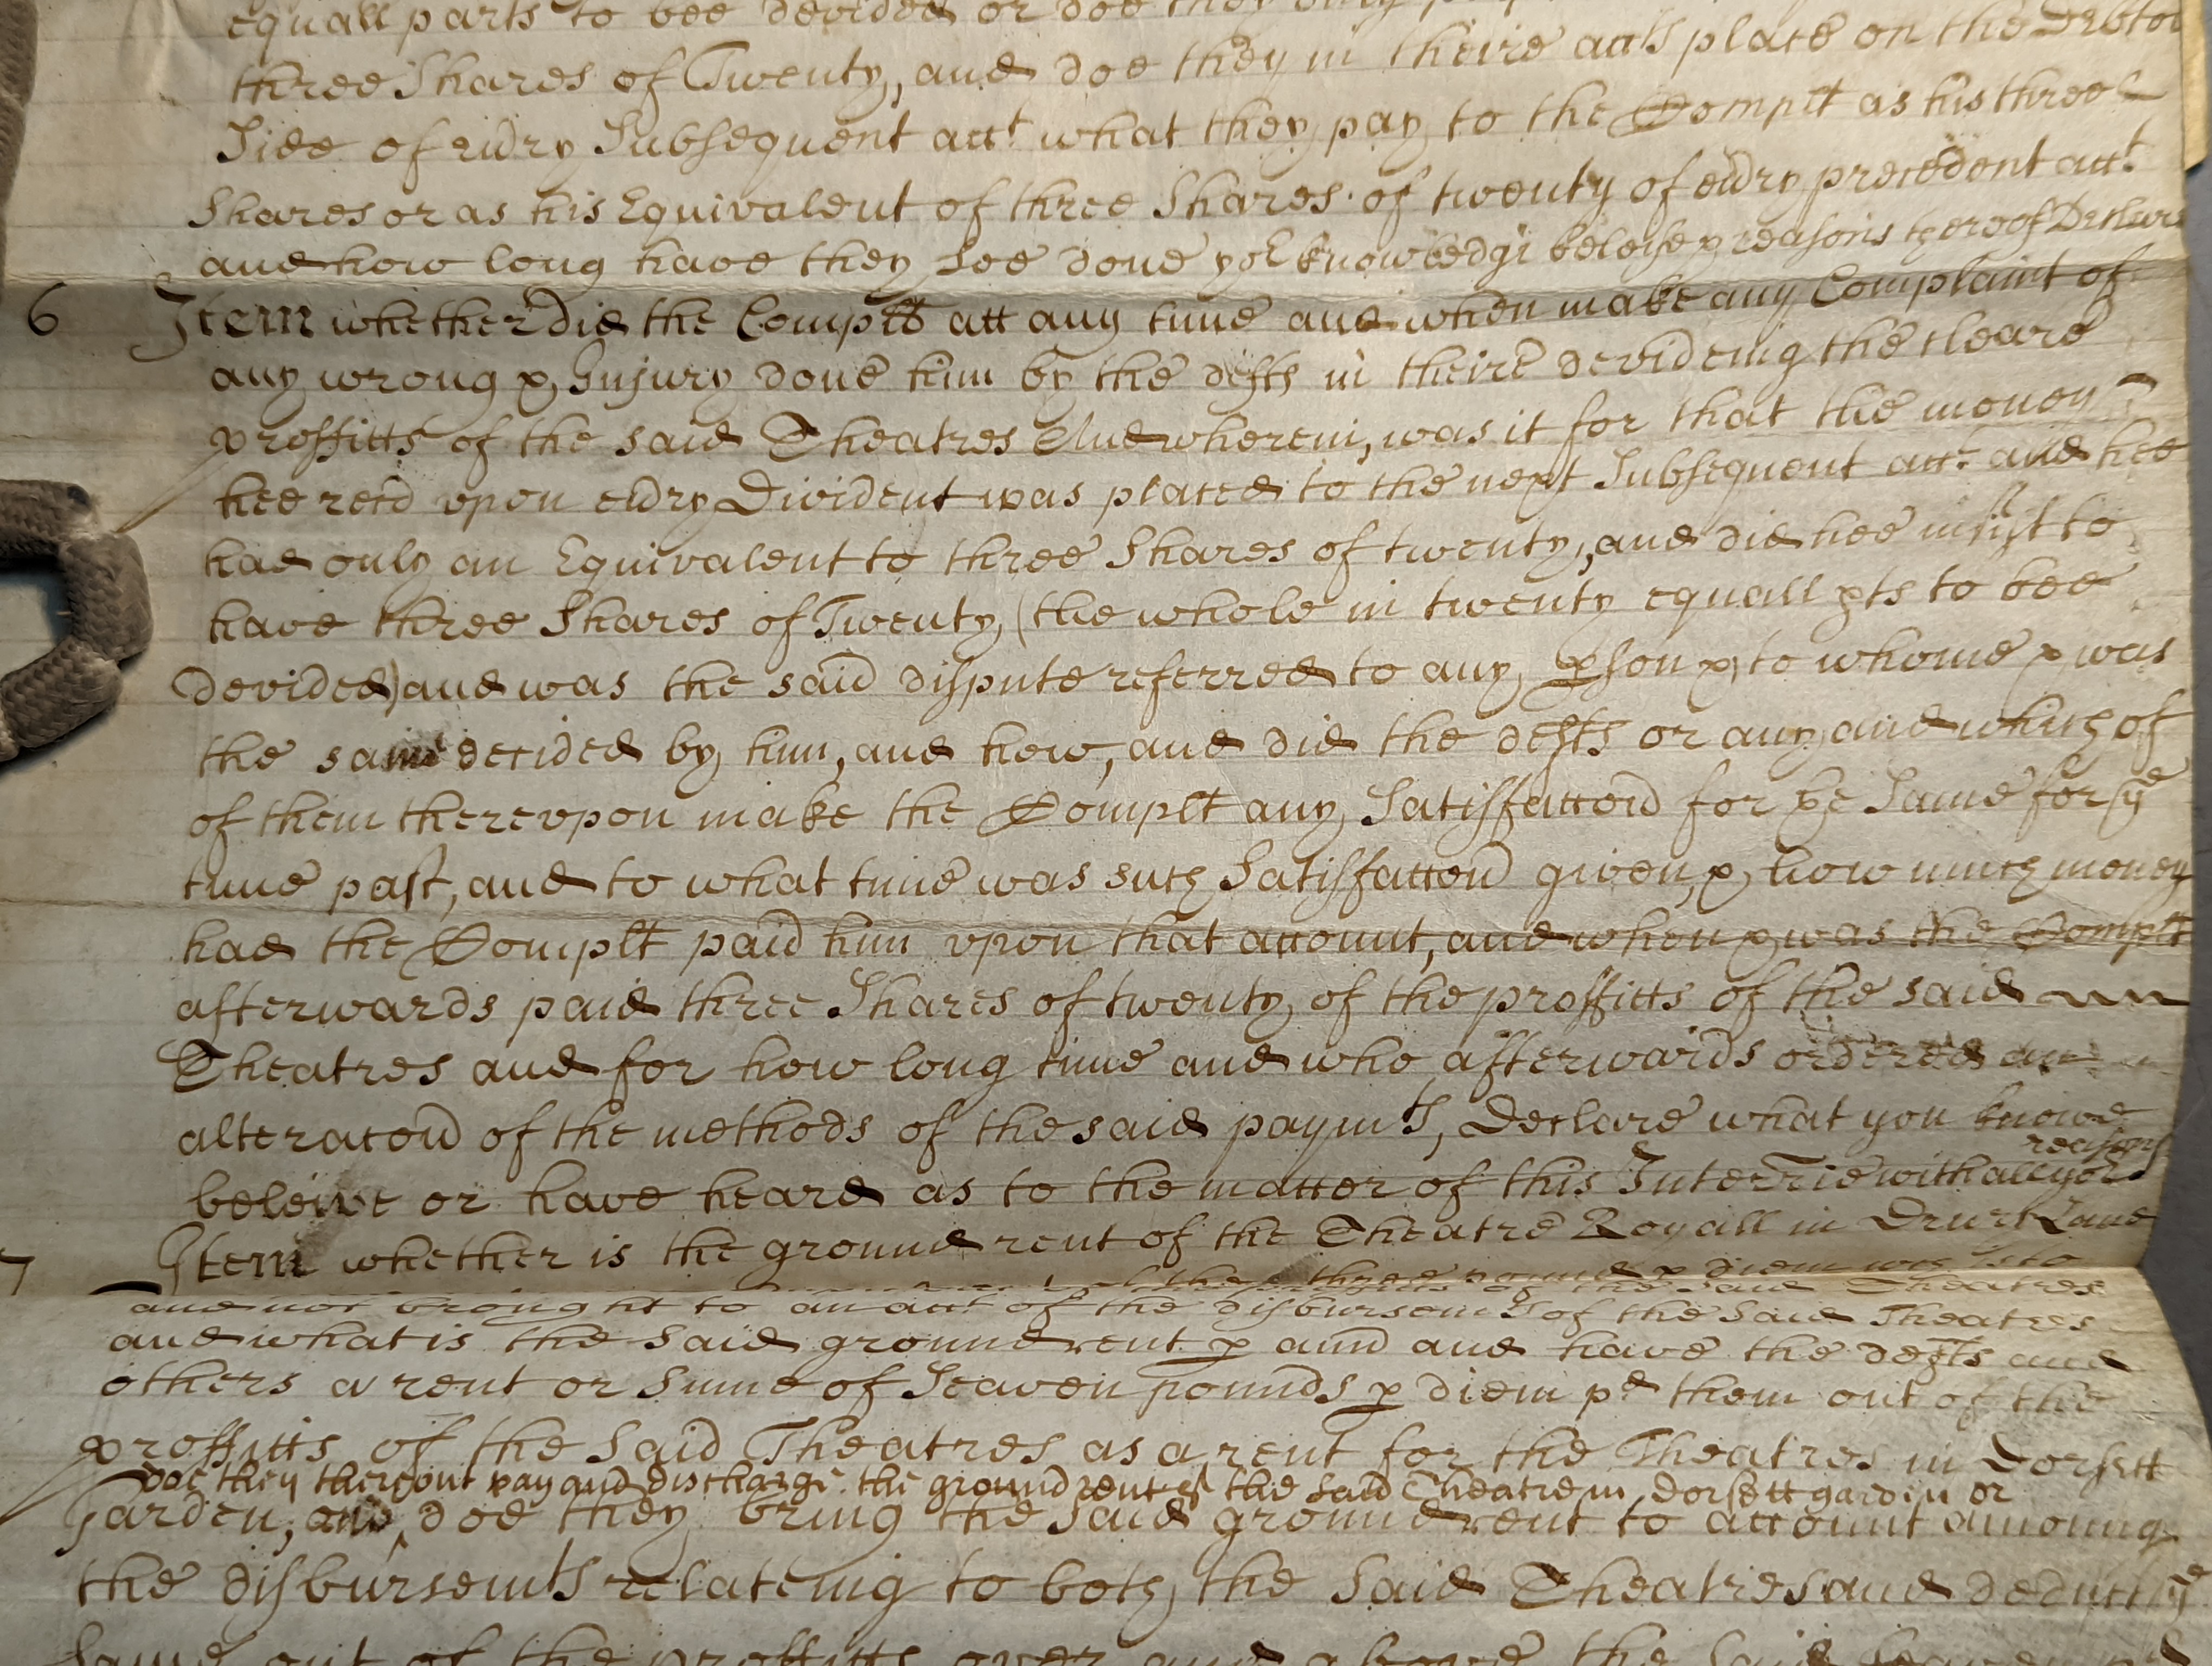 equall parts to bee devided or doe they only
three Shares of Twenty, and doe they in theire accts place on the Debtor
Side of every Subsequent acct what they pay to the Complt as his three
Shares or as his Equivalent of three Shares of twenty of every precedent acct
and how long have they soe done yor knowledge beleife & reasons thereof Declare
6 Item whether did the Complt att any time and when make any Complaint of
any wrong & Injury done him by the defts in theire devideing the cleare
proffitts of the said Theatres And wherein, was it for that the money
hee recd upon every Divident was placed to the next Subsequent acct and hee
had only an Equivalent to three Shares of twenty, and did hee insist to
have three Shares of Twenty, (the whole in twenty equall pts to bee
devided) and was the said dispute referred to any pson & to whome & was
the same decided by him, and how, and did the defts or any and which of
of them thereupon make the Complt any Satisfaccon for ye Same for ye
time past, and to what time was such Satisfaccon given, & how much money
had the Complt paid him vpon that account, and when & was the Complt
afterwards paid three Shares of twenty of the proffitts of the said
Theatres and for how long time and who afterwards ordered an
alteracon of the methods of the said paymts, Declare what you knowe
reasons
beleive or have heard as to the matter of this Interrie with all yor
7 Item whether is the ground rent of the Theatre Royall in Drury Lane
and not brought to an acct of the disbursemts of the Said Theatres
and what is the said ground rent p ann and have the defts and
others a rent or Sume of Seaven pounds p diem pd them out of the
proffitts of the Said Theatres as a rent for the Theatres in Dorsett
doe they thereout pay and discharge the ground rent of the said Theatre in Dorsett garden or
Garden, and doe they bring the said ground rent to account amoung
the disbursemts relateing to both the Said Theatres and deduct ye
Same out of the proffitts over and above the Said